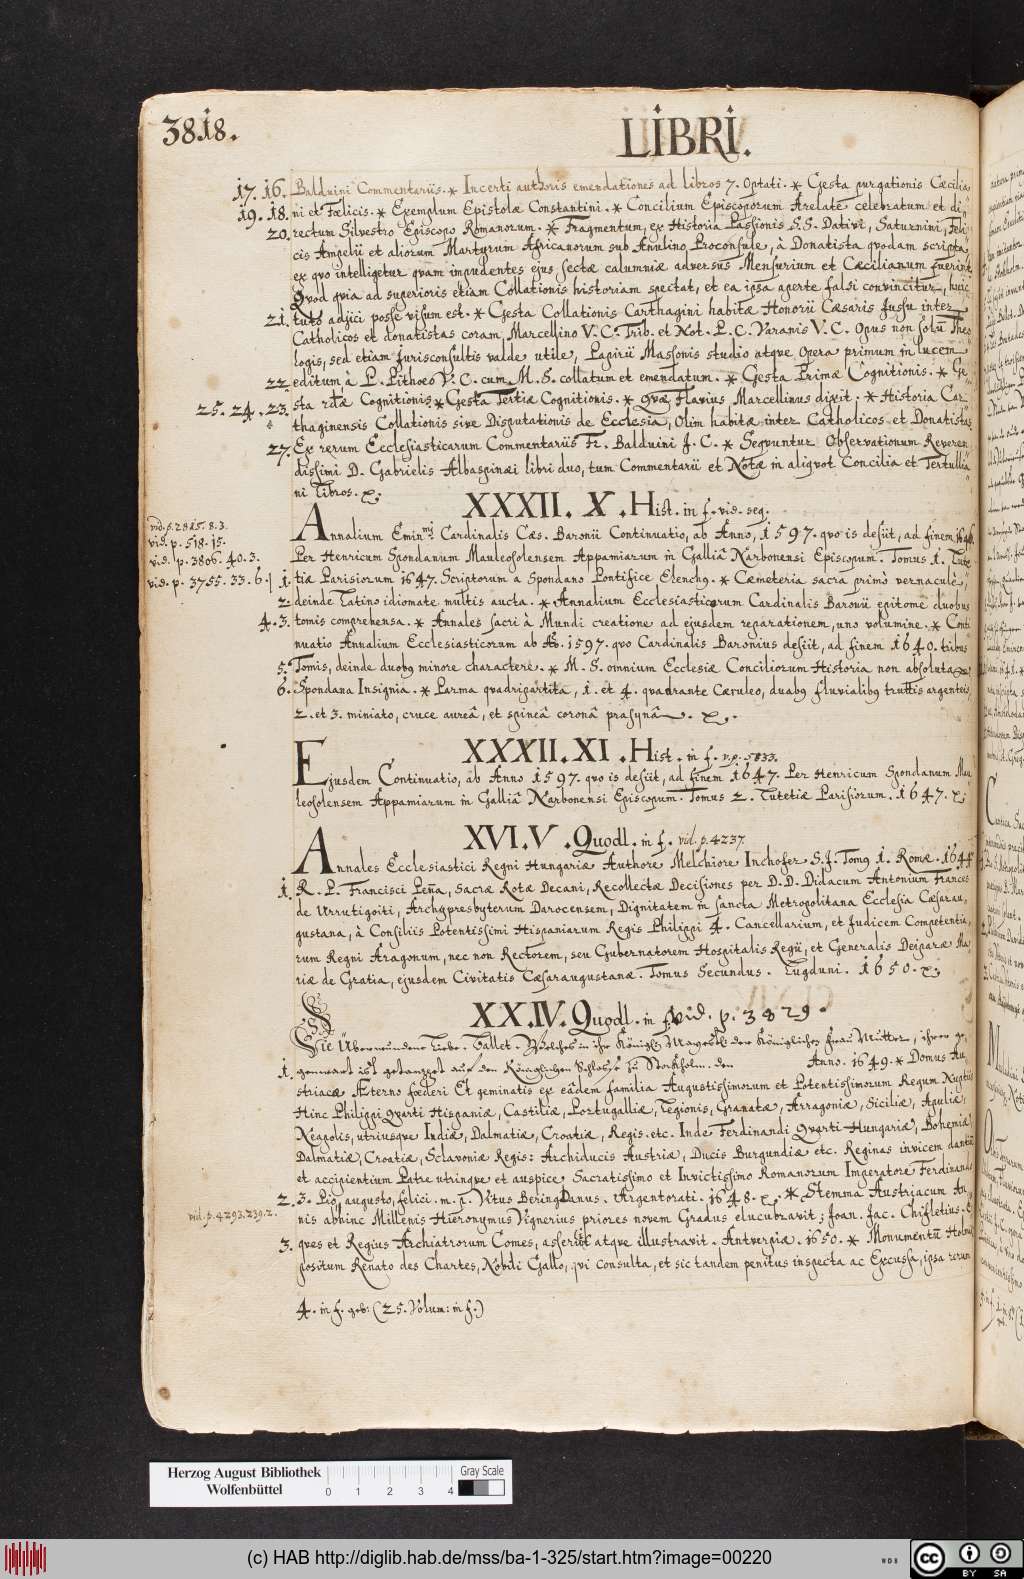 3818.
LIBRI.
17. 16. Balduini Commentariis. * Incerti authoris emendationes ad libros 7. Optati. * Gesta purgationis Cæcilia,
19. 18. ni et Fœlicis. * Exemplum Epistolæ Constantini. * Concilium Episcoporum Arelate celebratum et di,,
20. rectum Silvestro Episcopo Romanorum. * Fragmentum, ex Historia Passionis S.S. Dativi, Saturnini, Feli,,
cis Ampelii et aliorum Martyrum Africanorum sub Anulino Proconsule, à Donatista quodam scripta,
ex quo intelligetur quam impudentes ejus sectæ calumniæ adversus Mensurium et Cæcilianum fuerint
Quod quia ad superioris etiam Collationis historiam spectat, et ea ipsa aperte falsi convincitur, huic
21. tuto adjici posse visum est. * Gesta Collationis Carthagini habitæ Honorii Cæsaris jussu inter
Catholicos et donatistas coram Marcellino V. C. Trib. et Not. P. C. Varanis V. C. Opus non solũ Theo
logis, sed etiam Jurisconsultis valde utile, Papirii Massonis studio atque opera primum in lucem
22. editum à P. Pithoeo V. C. cum M. S. collatum et emendatum. * Gesta Primæ Cognitionis. * Ge,,
25. 24. 23. sta 2dæ Cognitionis * Gesta Tertiæ Cognitionis. * Quæ Flavius Marcellinus dixit. * Historia Car,,
thaginensis Collationis sive Disputationis de Ecclesia, Olim habitæ inter Catholicos et Donatistas
27. Ex rerum Ecclesiasticarum Commentariis Fr. Balduini J. C. * Sequuntur Observationum Reveren,,
dissimi D. Gabrielis Albaspinæi libri duo, tum Commentarii et Notæ in aliquot Concilia et Tertullia,,
ni Libros.
XXXII. X. Hist. in f. vid. seq.
vid. p. 2815. 8. 3.
vid. p. 518. 15.
vid. p. 3806. 40. 3.
vid. p. 3755. 33. 6.
Annalium Emin.mi Cardinalis Cæs. Baronii Continuatio, ab Anno, 1597. quo is desiit, ad finem 1646.
Per Henricum Spondanum Mauleosolensem Appamiarum in Galliâ Narbonensi Episcopum. Tomus 1. Lute,,
1. tiæ Parisiorum 1647. Scriptorum a Spondano Pontifice Elenchq. * Cæmeteria sacra primò vernaculè,
2. deinde Latino idiomate multis aucta. * Annalium Ecclesiasticorum Cardinalis Baronii epitome duobus
4. 3. tomis comprehensa. * Annales sacri à Mundi creatione ad ejusdem reparationem, uno volumine. * Conti
nuatio Annalium Ecclesiasticorum ab Aõ. 1597. quo Cardinalis Baronius desiit, ad finem 1640. tribus
5. Tomis, deinde duobq minore charactere. * M. S. omnium Ecclesiæ Conciliorum Historia non absoluta
6. Spondana Insignia. * Parma quadripartita, 1. et 4. quadrante Cæruleo, duabq fluvialibq truttis argenteis,
2. et 3. miniato, cruce aureâ, et spineâ coronâ prasynâ.
XXXII. XI. Hist. in f. v. p. 5833.
Ejusdem Continuatio, ab Anno 1597. quo is desiit, ad finem 1647. Per Henricum Spondanum Mau
leosolensem Appamiarum in Galliâ Narbonensi Episcopum. Tomus 2. Lutetiæ Parisiorum. 1647.
XVI. V. Quodl. in f. vid. p. 4237.
Annales Ecclesiastici Regni Hungariæ Authore Melchiore Inchofer S. J. Tomq 1. Romæ. 1644
1. R. P. Francisci Peña, Sacræ Rotæ Decani, Recollectæ Decisiones per D. D. Didacum Antonium Frances
de Urrutigoiti, Archypresbyterum Darocensem, Dignitatem in sancta Metropolitana Ecclesia Cæsarau,,
gustana, à Consiliis Potentissimi Hispaniarum Regis Philippi 4. Cancellarium, et Judicem Competentia,
rum Regni Aragonum, nec non Rectorem, seu Gubernatorem Hospitalis Regii, et Generalis Deiparæ Ma
riæ de Gratia, ejusdem Civitatis Cæsaraugustanæ. Tomus Secundus. Lugduni. 1650.
XXIV. Quodl. in f. vid. p. 3829.
Die Überwundene Liebe. Ballet. Welches in ihr Königl. Mayestät der Königlichen Frau Mutter, ihrer ge
1. genwart ist getanzet auf den Königlichen Schlosse zu Stockholm. den Anno. 1649. * Domus Au,,
striacæ Æterno fœderi Et geminatis ex eâdem familia Augustissimorum et Potentissimorum Regum Nuptiis
Hinc Philippi Quarti Hispaniæ, Castiliæ, Portugalliæ, Legionis, Granatæ, Arragoniæ, Siciliæ, Apuliæ,
Neapolis, utriusque Indiæ, Dalmatiæ, Croatiæ, Regis. etc. Inde Ferdinandi Quarti Hungariæ, Bohemiæ,
Dalmatiæ, Croatiæ, Sclavoniæ Regis: Archiducis Austriæ, Ducis Burgundiæ etc. Reginas invicem dantis
et accipientium Patre utrinque et auspice Sacratissimo et Invictissimo Romanorum Imperatore Ferdinando
2. 3. Pio, augusto, felici. Vitus Bering Danus. Argentorati. 1648. * Stemma Austriacum An,,
vid. p. 4293. 239. 2.
nis abhinc Millenis Hieronymus Vignerius priores novem Gradus elucubravit; Joan. Jac. Chifletius. E
3. ques et Regius Archiatrorum Comes, asseruit atque illustravit. Antverpiæ. 1650. * Monumentũ Holmi
positum Renato des Chartes, Nobili Gallo, qui consulta, et sic tandem penitus inspecta ac Excussa, ipsa rerum
4. in f. geb: (25. Volum: in f.)
Herzog August Bibliothek
Wolfenbüttel
0 1 2 3 4
Gray Scale
(c) HAB http://diglib.hab.de/mss/ba-1-325/start.htm?image=00220
WDB
cc BY SA